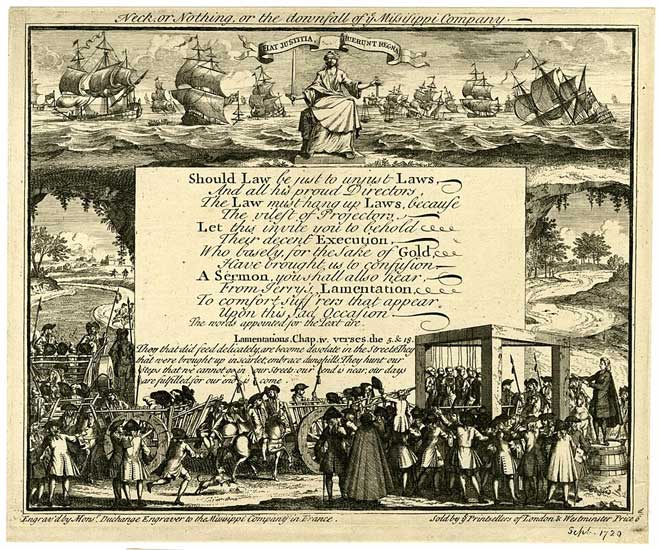 Neck, or Nothing, or the downfall of ye Missisippi Company.
FIAT JUSTITIA, RUERUNT REGNA
Should Law be just to unjust Laws,
And all his proud Directors,
The Law must hang up Laws, because
The vilest of Projectors,
Let this invite you to behold
Their decent Execution,
Who basely, for the Sake of Gold,
Have brought us to confusion
A Sermon, you shall also hear,
From Jerry's Lamentation,
To comfort Suff'rers that appear,
Upon this Sad Occasion.
The words appointed for the Text are.
Lamentations, Chap. iv. verses. the 5. & 18.
They that did feed delicately, are become desolate in the Streets: They
that were brought up in scarlet, embrace dunghills. They hunt our
steps that we cannot go in our Streets our end is near, our days
are fulfilled, for our end is come
Engrav'd by Monsr. Duchange Engraver to the Missisippi Company in France.
Sold by ye Printsellers of London & Westminster Price 6
Septr. 1720